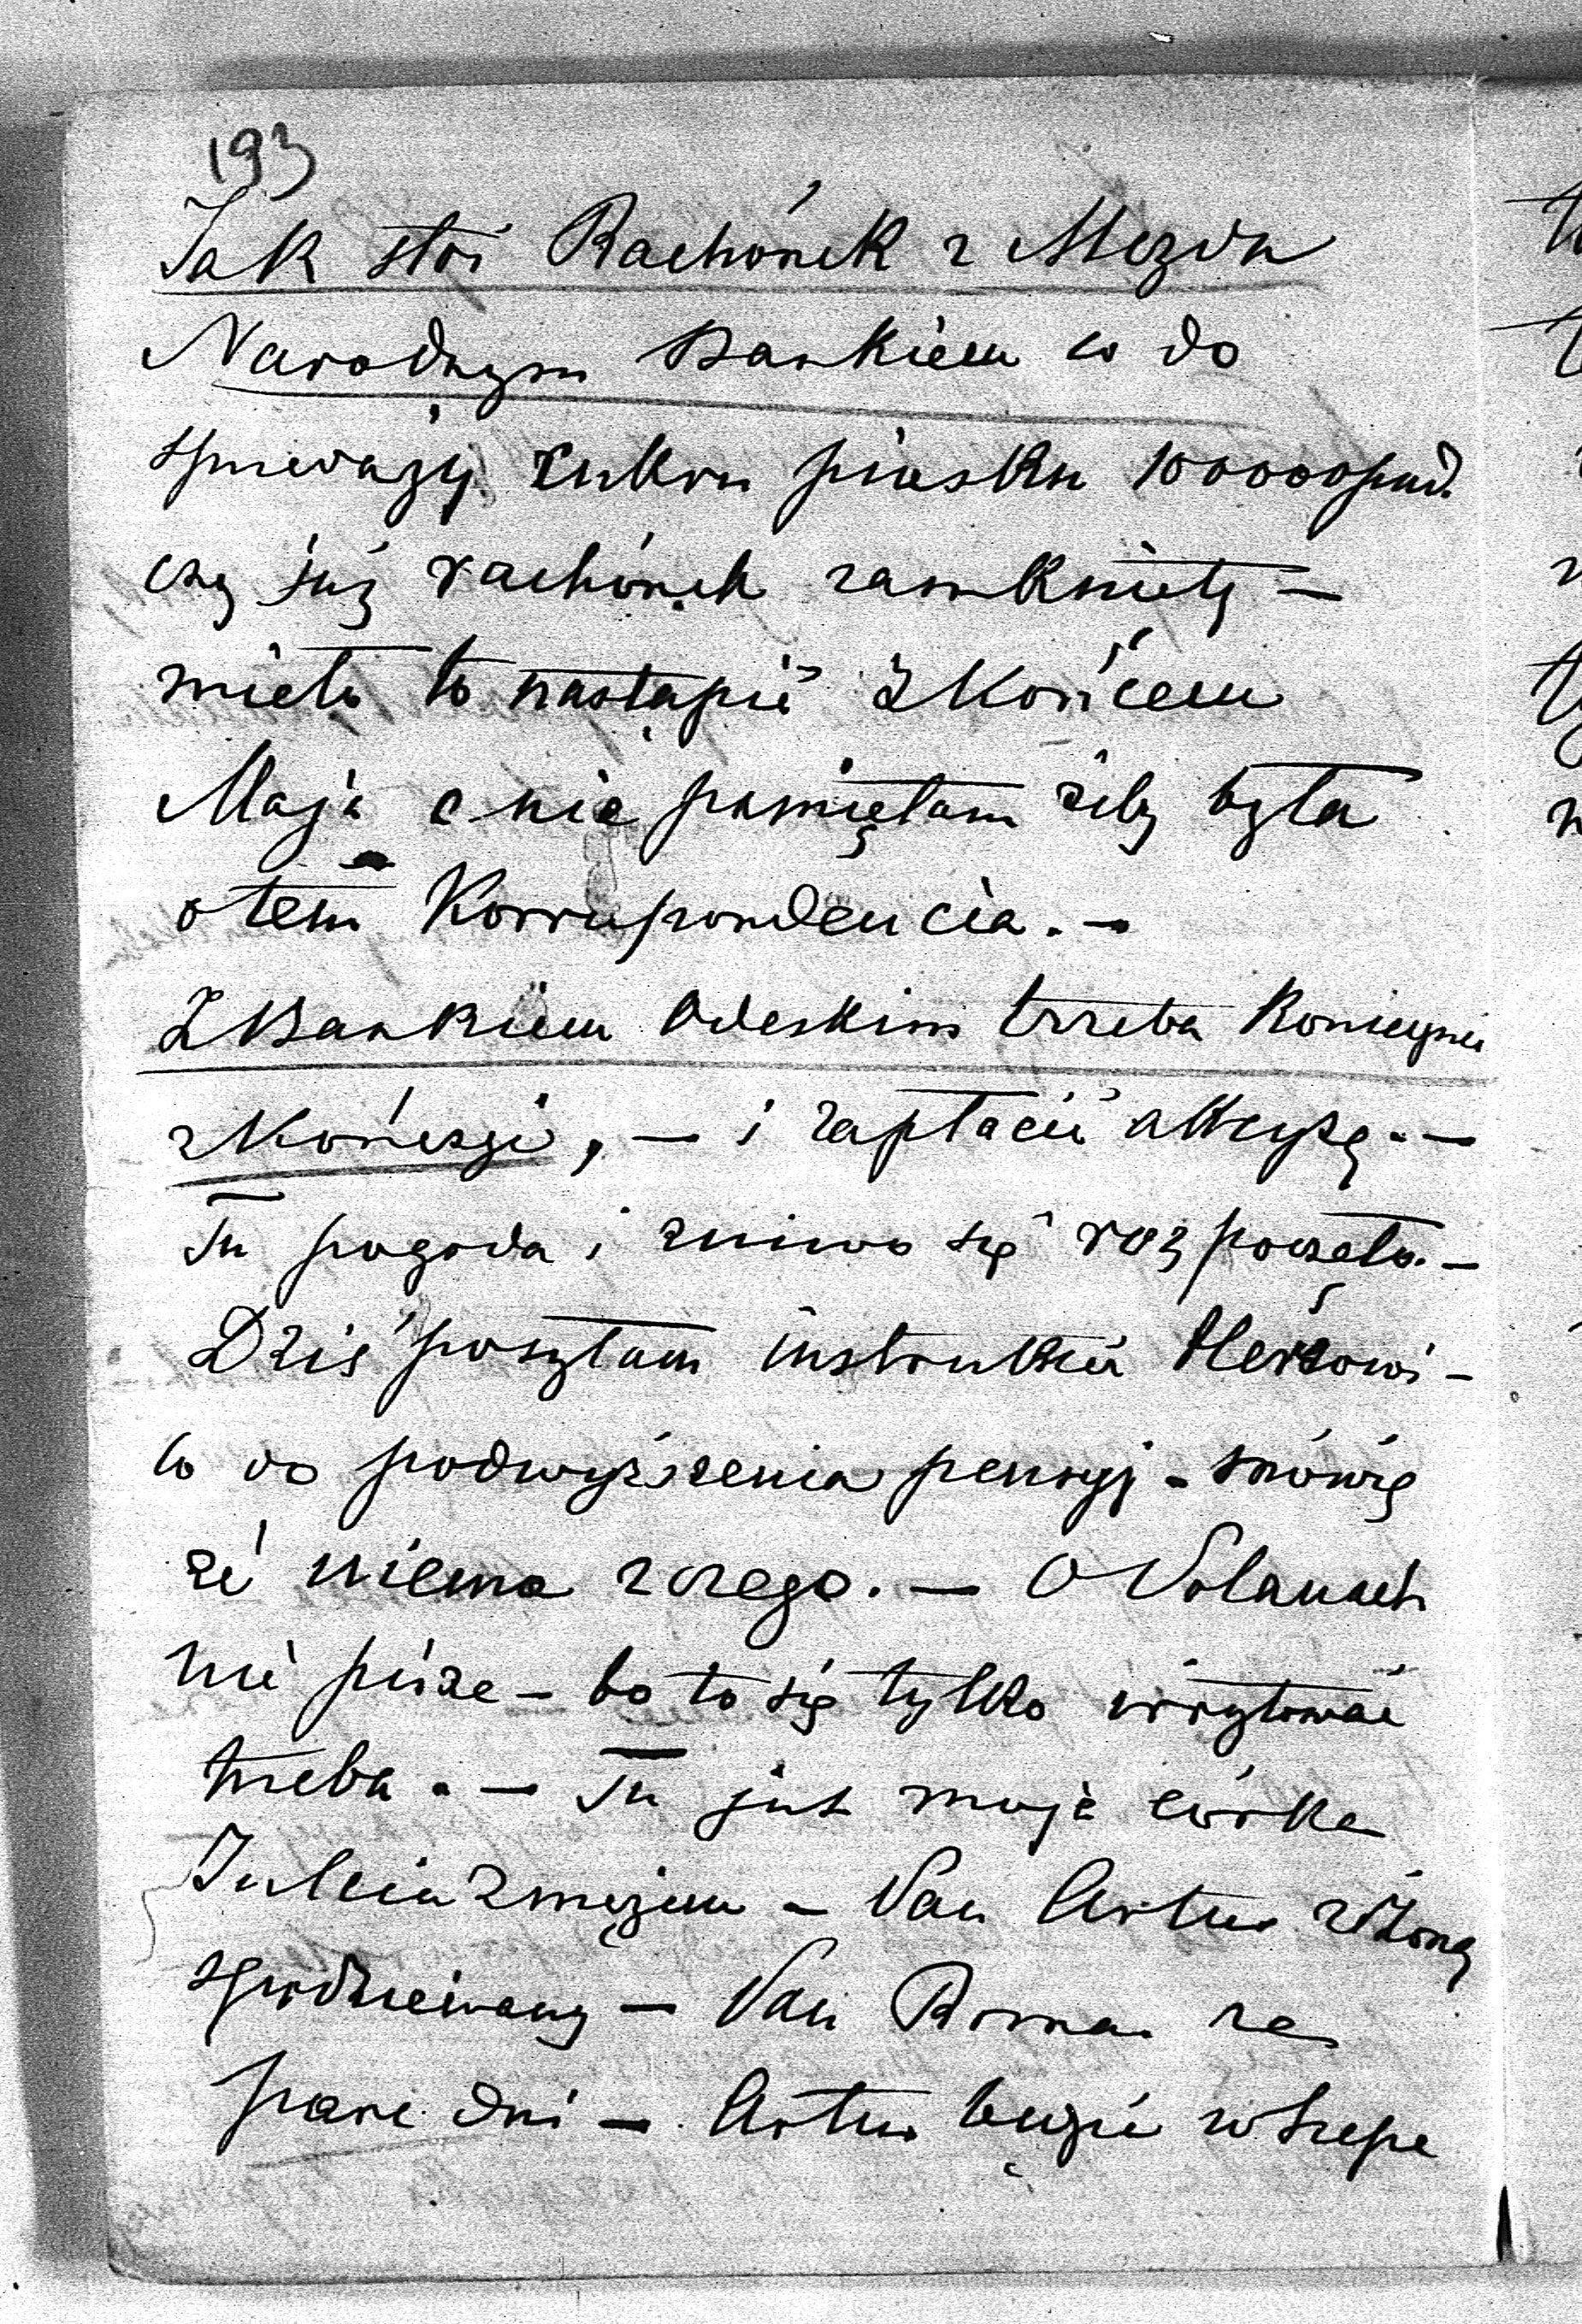 193
Jak stoi Rachónek z Mezdu
Narodnym Bankiem co do
sprzedaży cukru piasku 10000 pud.
czy już rachónek zamknięty —
mieło to nastąpić z Końcem
Maja a nie pamiętam żeby była
o tem Korrespondencia. —
Z Bankiem Odeskim trzeba Koniecznie
z Kończyć, — i zapłacić akcyzę. —
Tu pogoda i żniwo się rozpoczęło. —
Dziś posyłam instrukcią Herszowi —
co do podwyższenia pensyj — mówię
że niema z czego. — O Wolanach
nie piszę — bo to się tylko irrytować
trzeba. — Tu jest moja córka
Julcia z mężem — Pan Artur z Żoną
spodziewany — Pan Roman za
pare dni — Artur będzie w